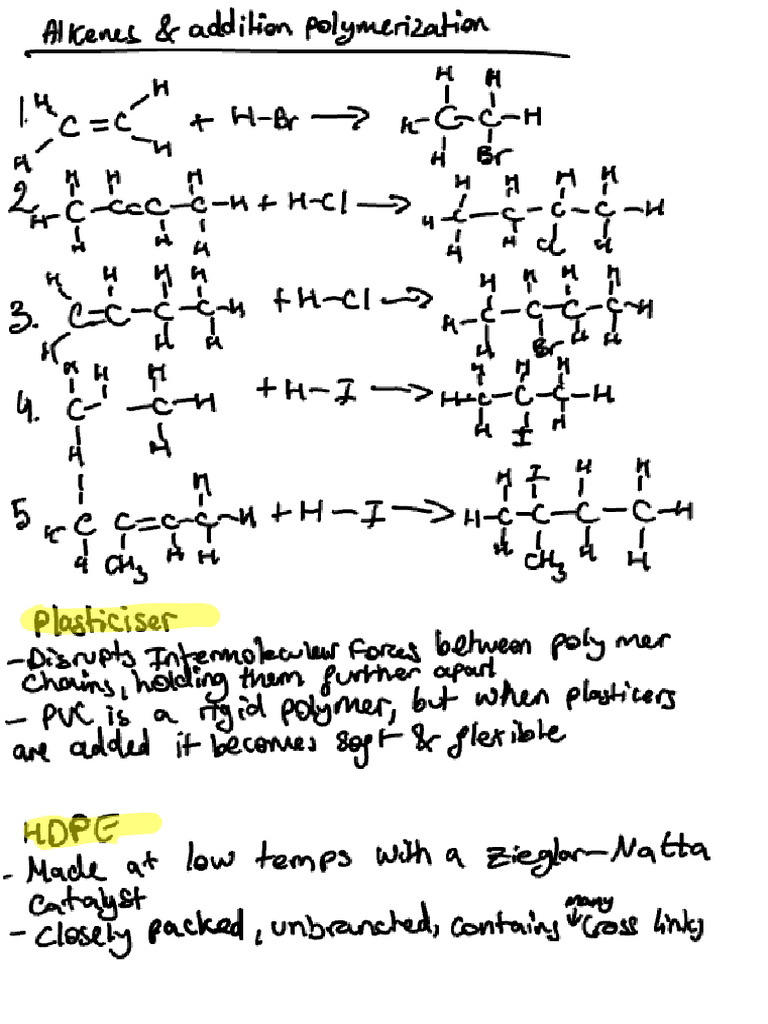 Alkenes & addition polymerization
1. H H C=C H H + H-Br → H H H-C-C-H H Br
2. H H H H-C-C=C-C-H H H H + H-Cl → H H H H H-C-C-C-C-H H H Cl H
3. H H H H C=C-C-C-H H H H + H-Cl → H H H H H-C-C-C-C-H H Br H H
4. H H H C- -C-H H H + H-I → H H H H-C-C-C-H H I H
5 H H C C=C-C-H H CH3 H H + H-I → H I H H H-C-C-C-C-H H CH3 H H
Plasticiser
- Disrupts Intermolecular Forces between polymer
chains, holding them further apart
- PVC is a rigid polymer, but when plasticers
are added it becomes soft & flexible
HDPE
- Made at low temps with a Zieglar-Natta
Catalyst
- Closely packed, unbranched, contains many ↓ cross links